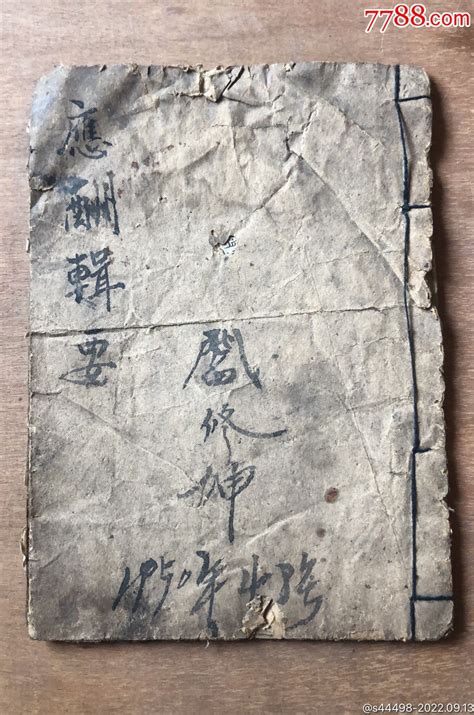 7788.com
應酬輯要
修坤
1950年
@s44498-2022.09.13